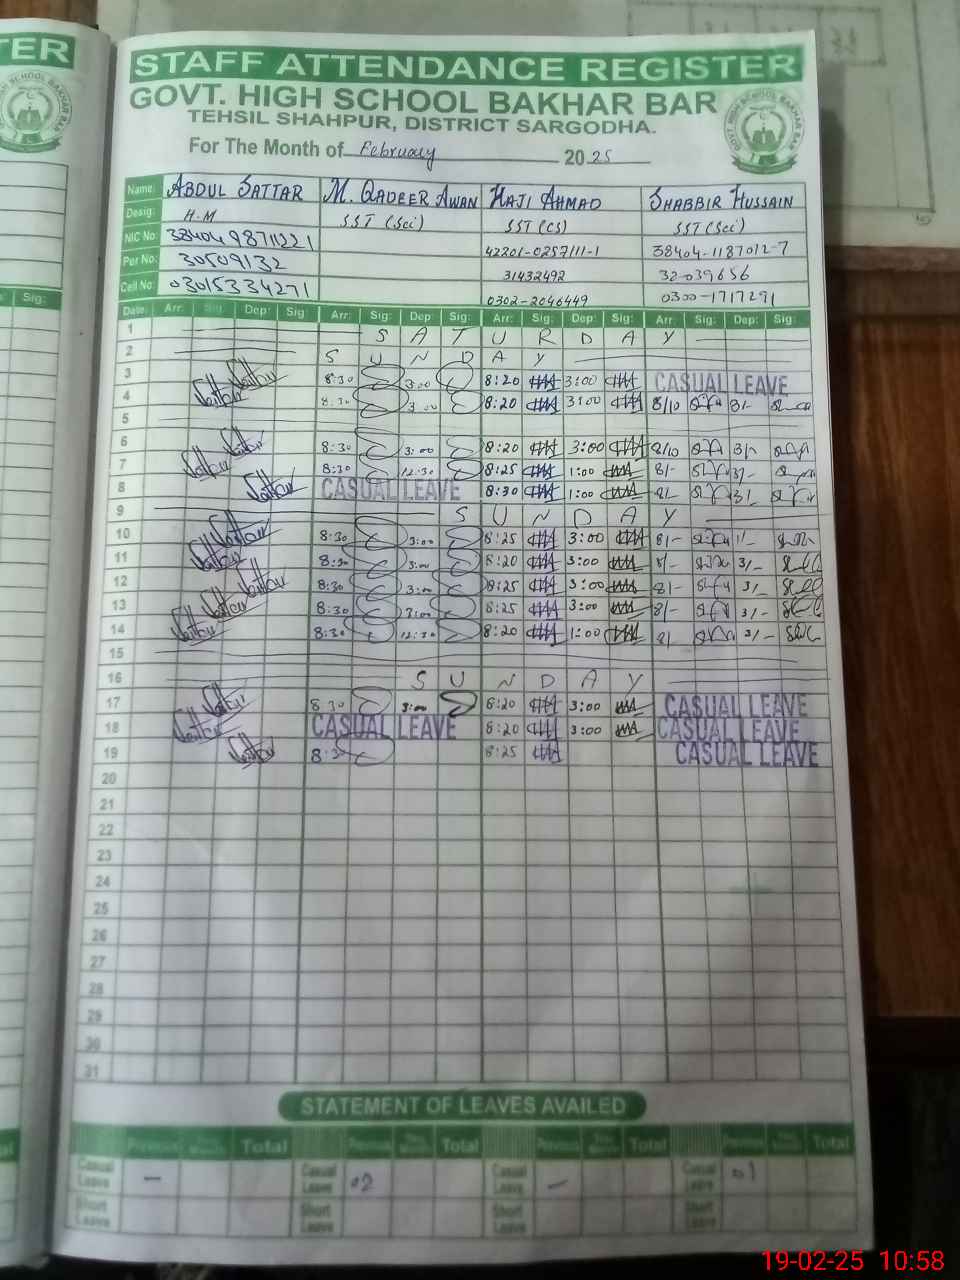 TER
STAFF ATTENDANCE REGISTER
GOVT. HIGH SCHOOL BAKHAR BAR
TEHSIL SHAHPUR, DISTRICT SARGODHA.
For The Month of February 2025
Name: ABDUL SATTAR M. QADEER AWAN HAJI AHMAD SHABBIR HUSSAIN
Desig: H.M SST (Sci) SST (CS) SST (Sci)
NIC No: 42201-0257111-1 38404-1187012-7
Per No: 30509132 31432492 32039656
Cell No: 03015334271 0302-2046449 0300-1717291
Date: Arr: Sig: Dep: Sig: Arr: Sig: Dep: Sig: Arr: Sig: Dep: Sig: Arr: Sig: Dep: Sig:
1 S A T U R D A Y
2 S U N D A Y
3 8:30 3:00 8:20 3:00 CASUAL LEAVE
4 8:30 3:00 8:20 3:00 8/10 3/-
5
6 8:30 3:00 8:20 3:00 8/10 3/-
7 8:30 12:30 8:25 1:00 8/- 3/-
8 CASUAL LEAVE 8:30 1:00 8/- 3/-
9 S U N D A Y
10 8:30 3:00 8:25 3:00 8/- 1/-
11 8:30 3:00 8:20 3:00 8/- 3/-
12 8:30 3:00 8:25 3:00 8/- 3/-
13 8:30 3:00 8:25 3:00 8/- 3/-
14 8:30 12:30 8:20 1:00 8/- 3/-
15
16 S U N D A Y
17 8:30 3:00 8:20 3:00 CASUAL LEAVE
18 CASUAL LEAVE 8:20 3:00 CASUAL LEAVE
19 8:30 8:25 CASUAL LEAVE
20
21
22
23
24
25
26
27
28
29
30
31
STATEMENT OF LEAVES AVAILED
Previous Total Previous Total Previous Total Previous Total
Casual Leave - Casual Leave 02 Casual Leave - Casual Leave 01
Short Leave Short Leave Short Leave Short Leave
19-02-25 10:58